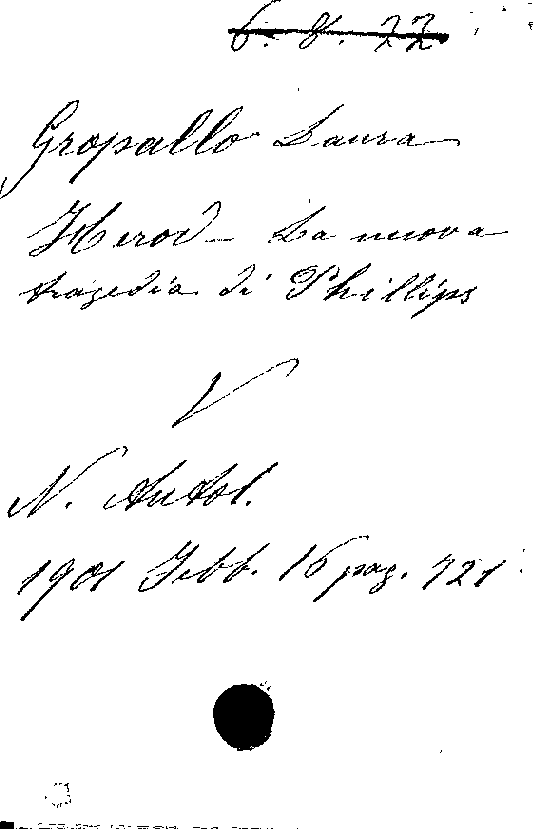 6. 8. 22
Gropallo Laura
Herod - La nuova
tragedia di Phillips
V
N. Antol.
1901 Febb. 16 pag. 721